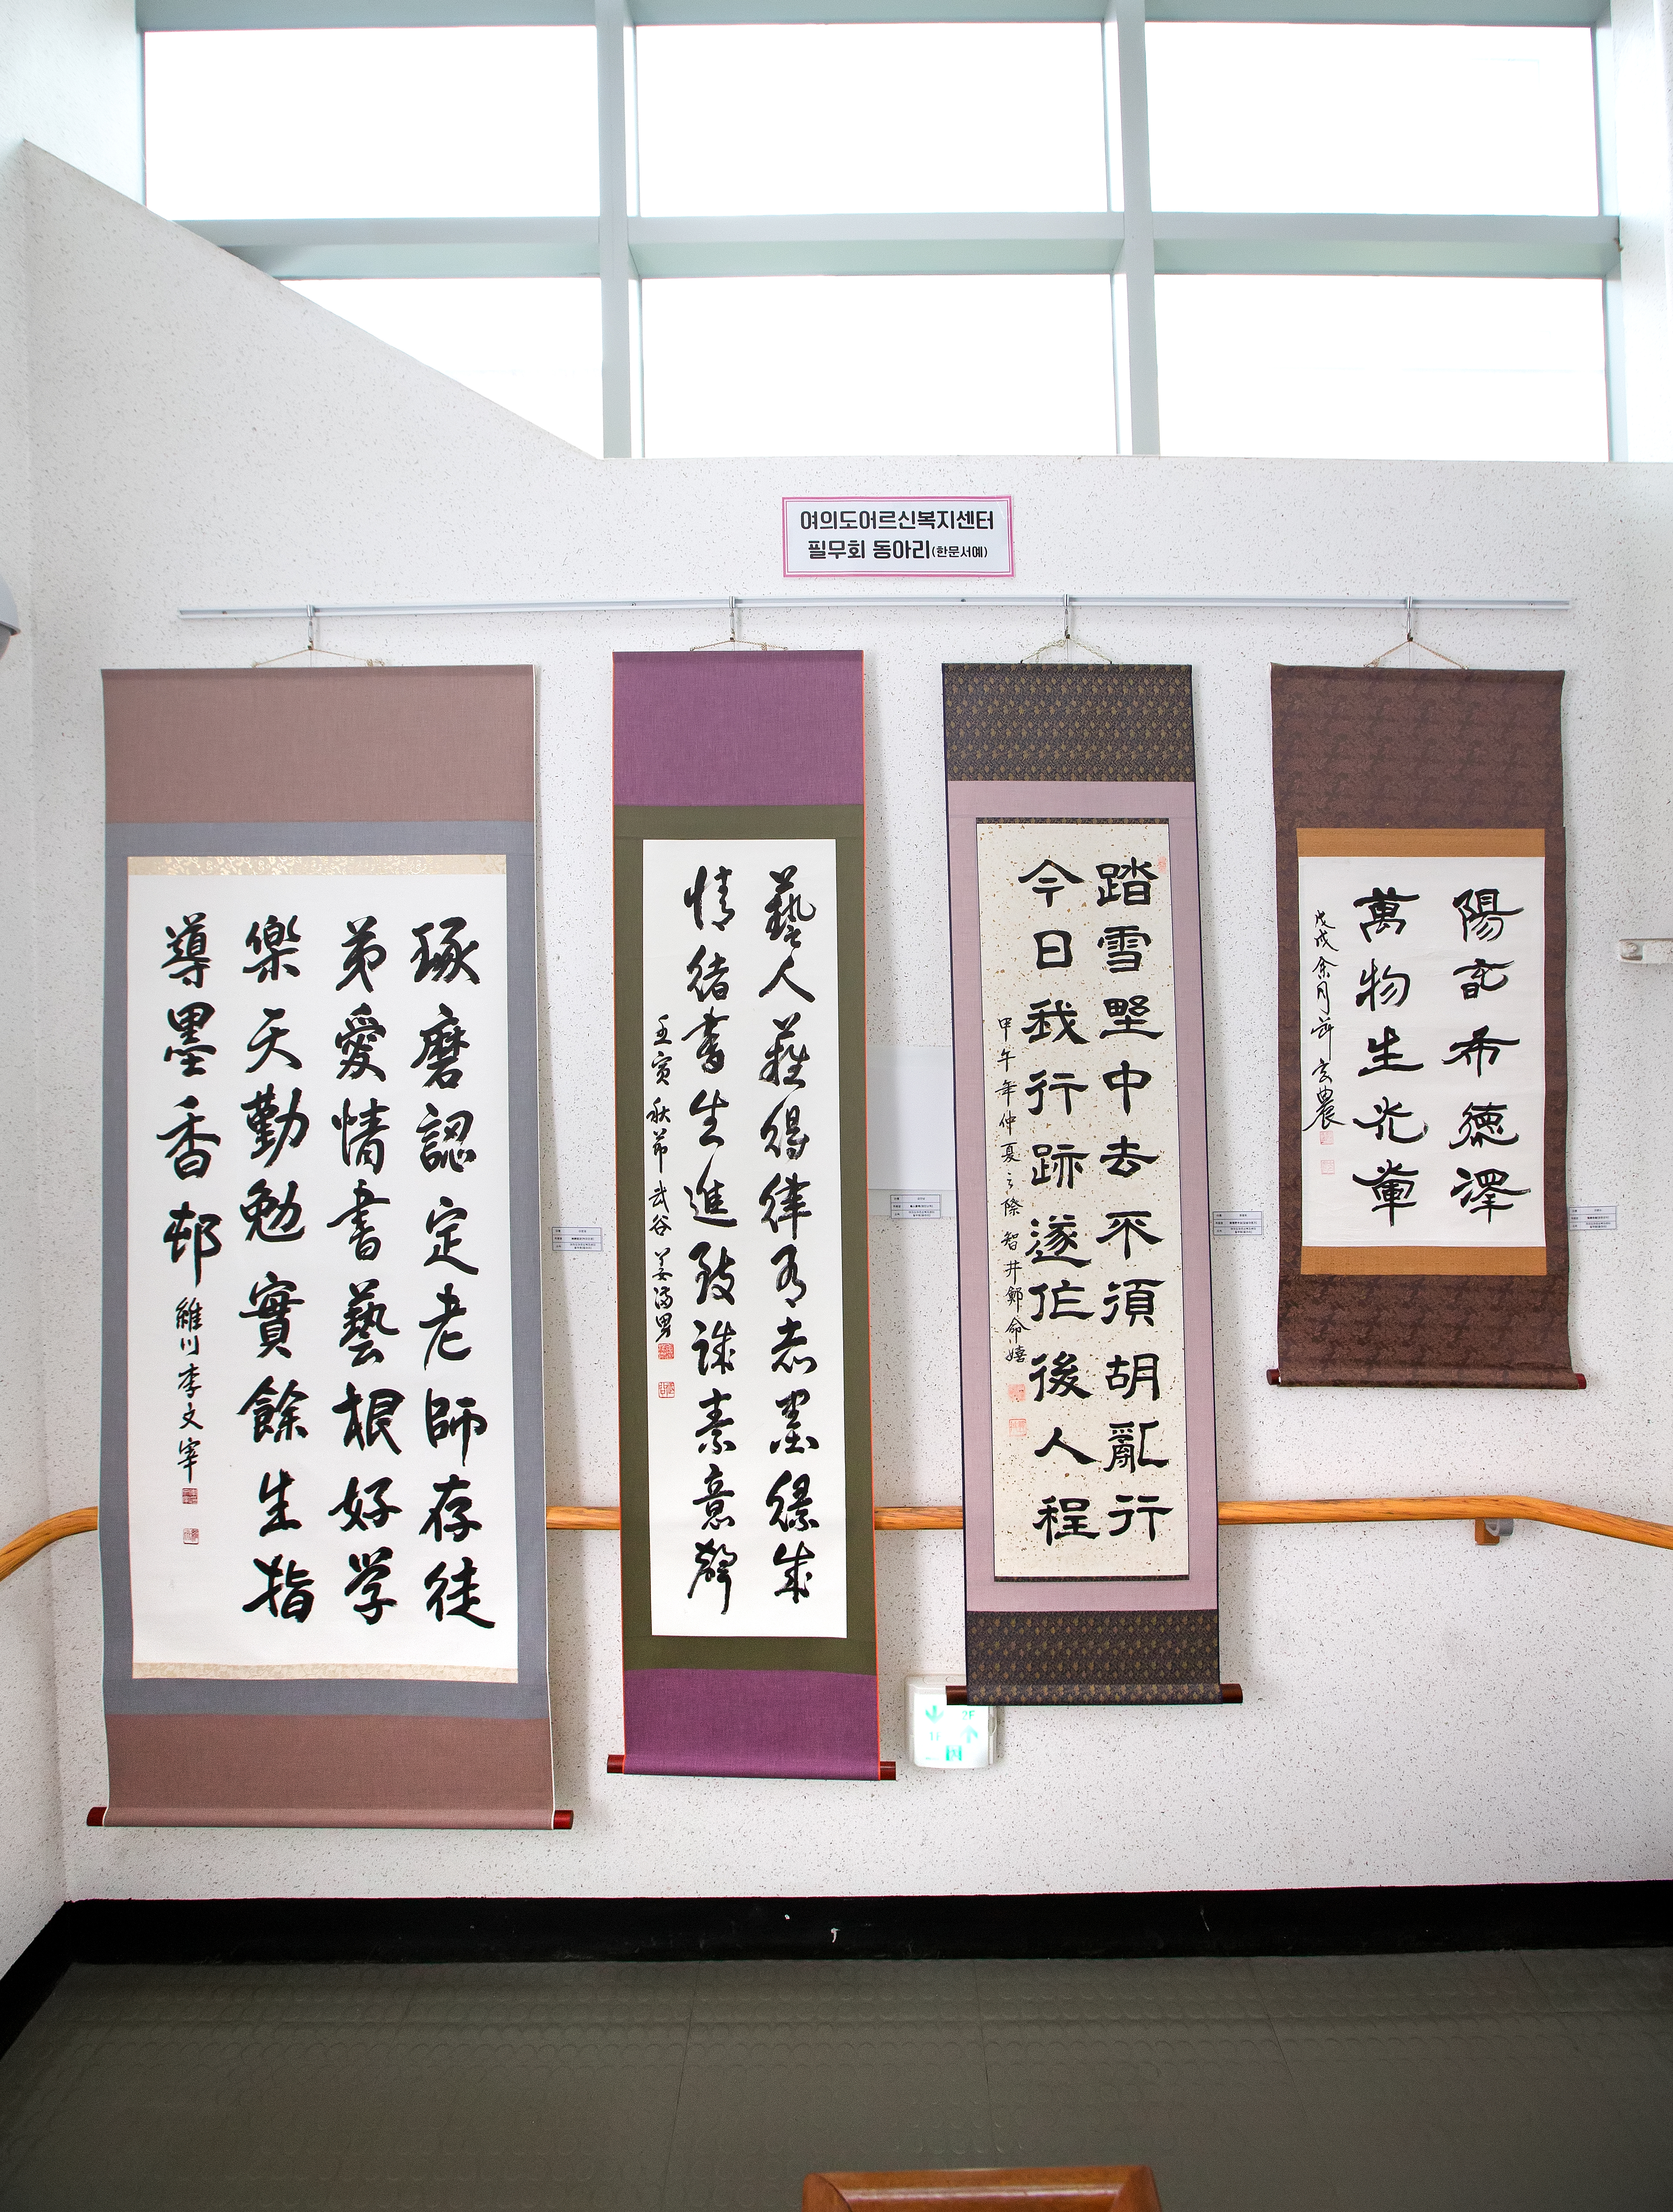 여의도어르신복지센터
필무회 동아리(한문서예)
琢磨認定老師存徒
弟愛情書藝根好学
樂天勤勉實餘生指
導墨香邨
維川 李文宰
藝人得律志墨緣成
情緒書生進致誠素意聲
壬寅 秋节 武谷 姜男
踏雪野中去不須胡亂行
今日我行跡遂作後人程
甲午年仲夏之際 智井鄭命嬉
陽春布德澤
萬物生光輝
戊戌余月節 玄農